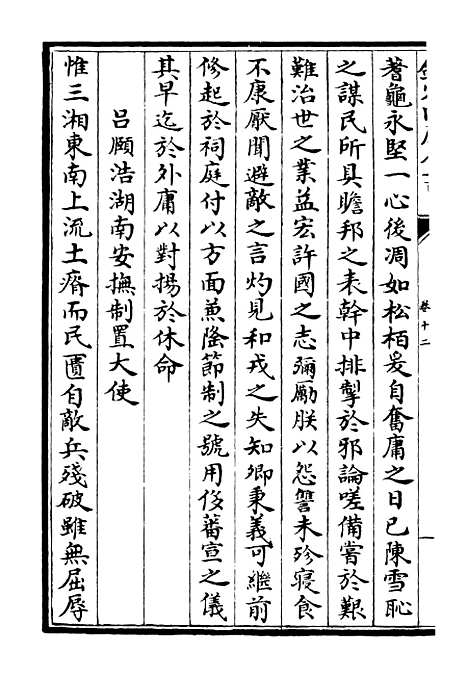 蓍龜永堅一心後凋如松栢爰自奮庸之日已陳雪恥
之謀民所具瞻邦之表幹中排掣於邪論嗟備嘗於艱
難治世之業益宏許國之志彌勵朕以怨讐未殄寝食
不康厭聞避敵之言灼見和戎之失知卿秉義可繼前
修起於祠庭付以方面兼隆節制之號用侈蕃宣之儀
其早迄於外庸以對揚於休命
吕頤浩湖南安撫制置大使
惟三湘東南上流土瘠而民匱自敵兵殘破雖無屈辱
卷十二
一